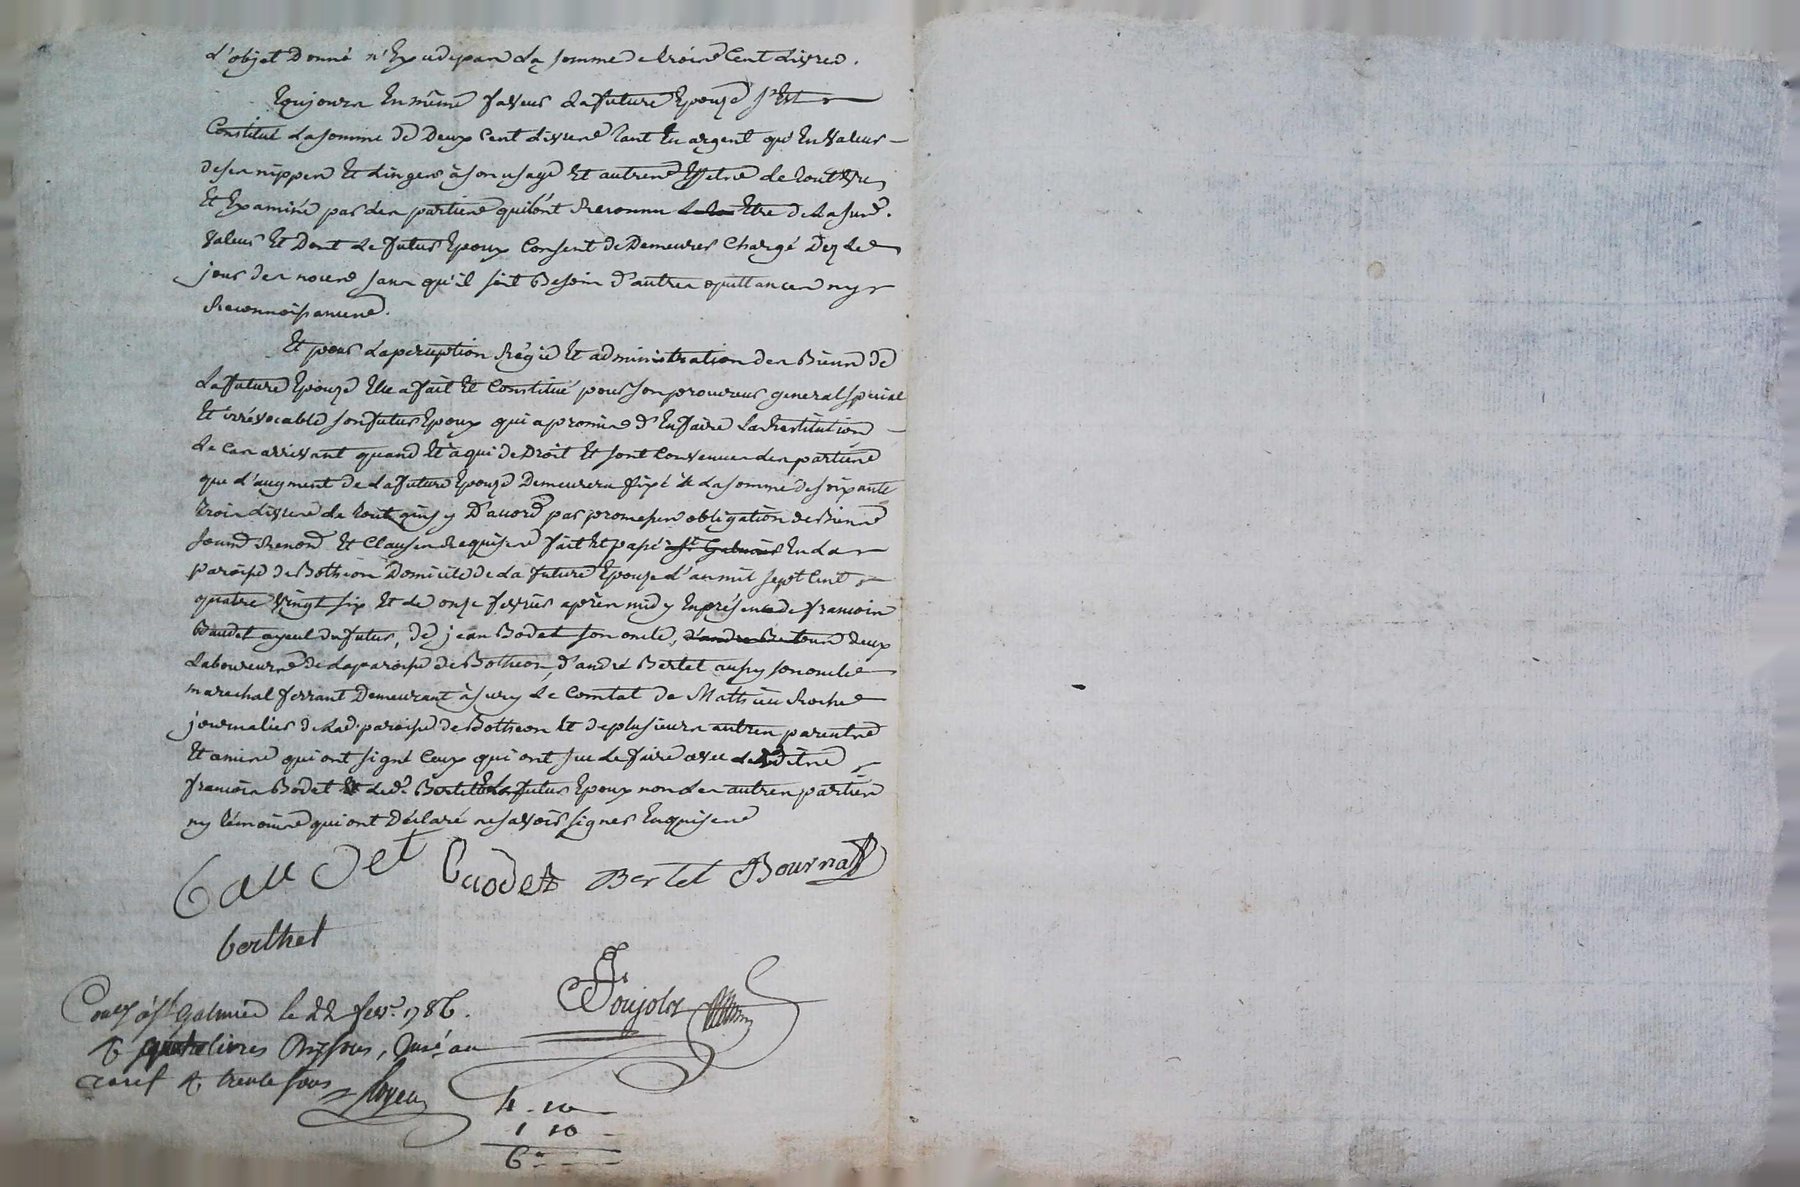 L'objet Donné n'Excede pas La somme de trois Cent Livres.
Toujours En même faveur La future Epouze s'Est
Constitué La somme de Deux Cent Livres tant En argent qu'En Valeur
de ses nippes Et Linges à son usage Et autres Effets de tout Vu
Et Examiné par les parties qui l'ont Reconnu Etre de La sud.
Valeur Et Dont Le futur Epoux Consent de Demeurer Chargé Dez Le
jour des noces sans qu'il soit Besoin d'autres quittances ny
Reconnoissances.
Et pour La perception Régie Et administration des Biens de
La future Epouze Elle a fait Et Constitué pour son procureur general special
Et irrévocable son futur Epoux qui a promis d'En faire La Restitution
Le Cas arrivant quand Et à qui de Droit Et sont Convenues les parties
que L'augment de La future Epouze Demeurera fixé à La somme de soixante
trois Livres de tout quoy D'accord par promesses obligation de Biens
Soum. Renon. Et Clauses Requises fait Et passé St Galmier En La
paroisse de Botheon Domicile de La future Epouze L'an mil sept Cent
quatre Vingt six Et Le onze fevrier après midy En présence de francois
Baudet ayeul du futur, de jean Bodet son oncle, d'andre Berton Deux
Laboureurs de La paroisse de Botheon, d'andré Bertet aussy son oncle
marechal ferrant Demeurant à sury Le Comtal de Mathieu Roche
journalier de Lad. paroisse de Botheon Et de plusieurs autres parents
Et amis qui ont signé Ceux qui ont sçu Le faire avec Lesdits
francois Bodet Et Led. Bertet Le futur Epoux non Les autres parties
ny témoins qui ont Déclaré ne savoir signer Enquis
baudet Baodet Bertet Bournat
berthet
Poujol
Con. à St Galmier le 22 fevr. 1786.
R quatre livres Dix sous, Insé au
tarif R. trente sous
4. 10
1 10
6"